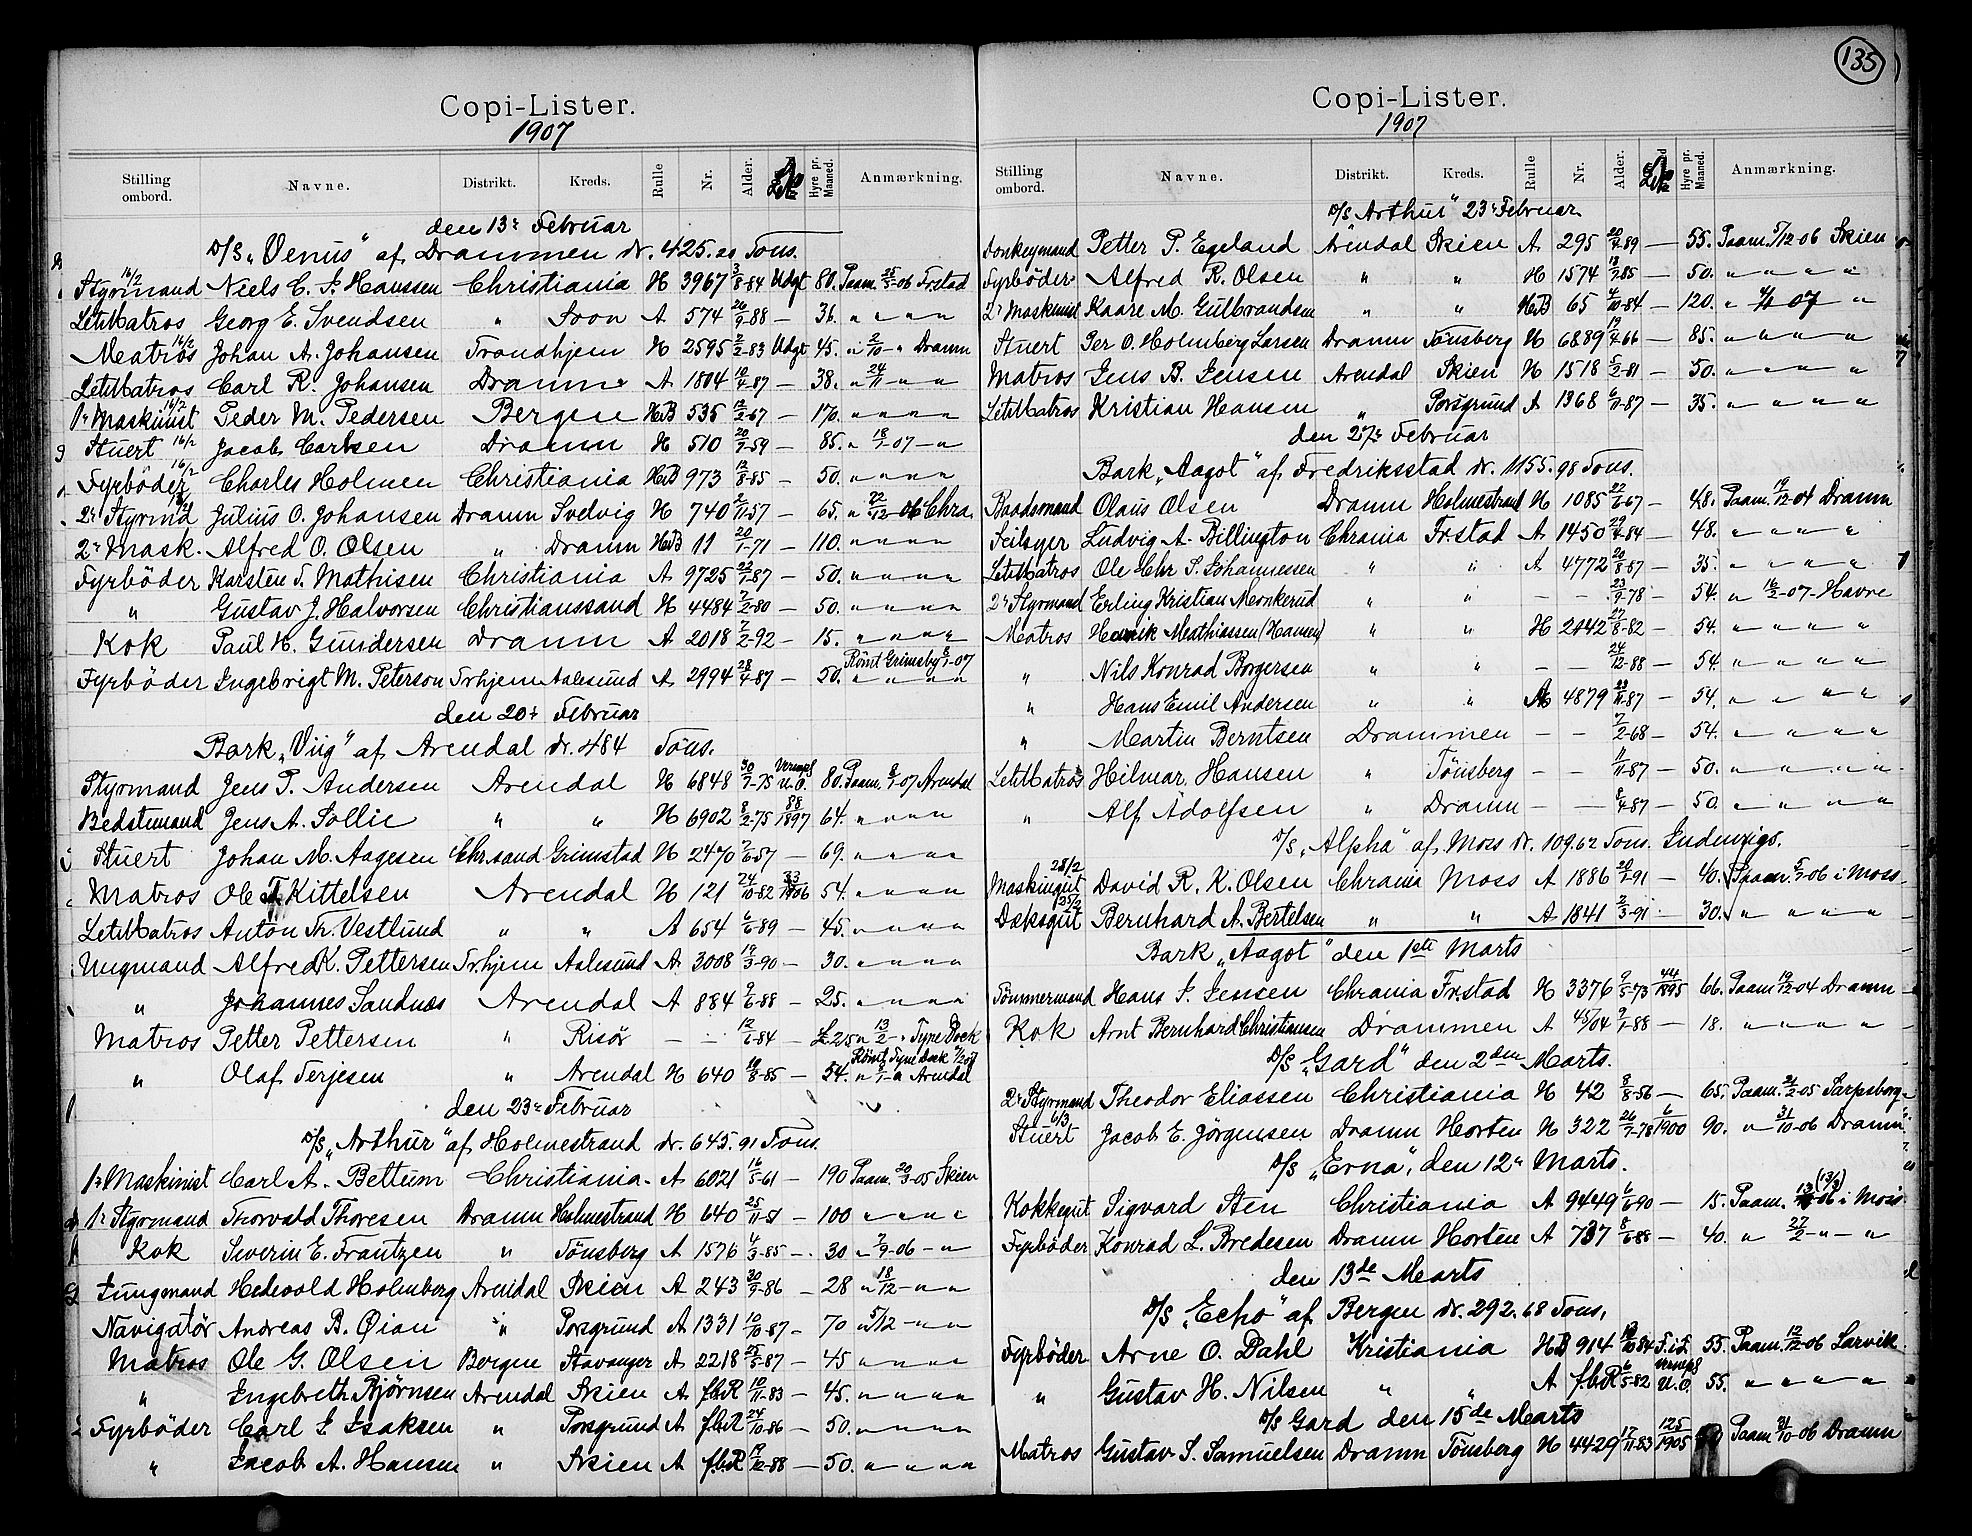 Copi-Lister.
1907
Stilling ombord. Navne. Distrikt. Kreds. Rulle Nr. Alder. Hyre pr. Maaned. Anmærkning.
den 13de Februar
D/S „Venus" af Drammen dr. 425.20 Tons.
Styrmand 16/2 Niels C. F. Hanssen Christiania H 3967 3/8-84 Udgt 80. Paam. 25/5-06 Frstad
LetMatros Georg E. Svendsen " Soon A 574 26/9-88 — 36. " " " "
Matros 16/2 Johan A. Johansen Trondhjem H 2595 2/2-83 Udgt 45. " 2/10 - " Dramn
LetMatros Carl R. Johansen Dramn A 1804 10/4-87 — 38. " 24/11 " " "
1ste Maskinist 16/2 Peder M. Pedersen Bergen HB 535 12/2-67 — 170. " " " "
Stuert 16/2 Jacob Carlsen Dramn H 510 20/7-59 — 85. " 18/1-07 - "
Fyrböder 16/2 Charles Holmen Christiania HB 973 12/8-85 — 50. " " " "
2den Styrmd Julius O. Johansen Dramn Svelvig H 740 2/11-57 — 65. " 22/12-06 Chra.
2den Mask. Alfred O. Olsen " Dramn HB 11 20/1-71 — 110. " " " "
Fyrböder Karsten T. Mathisen Christiania A 9725 22/1-87 — 50. " " " "
" Gustav J. Halvorsen Christianssand H 4484 7/2-80 — 50. " " " "
Kok Paul H. Gundersen Dramn A 2018 7/2-92 — 15. " " " "
Römt Grimsby 8/1-07
Fyrböder Ingebrigt M. Peterson Trhjem Aalesund A 2994 28/4-87 — 50. " " " "
den 20de Februar
Bark „Viig" af Arendal dr. 484 Tons.
Styrmand Jens P. Andersen Arendal H 6848 30/7-75 Vernepl U.O. 80. Paam. 8/1-07 Arendal
Bedstemand Jens A. Sollie " " H 6902 8/2-75 88/1897 64. " " " "
Stuert Johan M. Aagesen Chr.sand Grimstad H 2470 2/6-57 — 69. " " " "
Matros Ole T. Kittelsen Arendal H 121 24/10-82 33/1906 54. " " " "
LetMatros Anton Th. Vestlund " " A 654 6/6-89 — 45. " " " "
Ungmand Alfred K. Pettersen Tr.hjem Aalesund A 3008 19/3-90 — 30. " " " "
" Johannes Sandnæs Arendal A 884 9/6-88 — 25. " " " "
Matros Petter Pettersen " Risör — — 12/6-84 — £25 " 13/2 - " Tyne Dock
Römt Tyne Dock
" Olaf Terjesen " Arendal H 640 10/8-85 — 54. " 8/1 " Arendal
den 23de Februar
D/S „Arthur" af Holmestrand dr. 645.91 Tons.
1ste Maskinist Carl A. Bettum Christiania A 6021 16/5-61 — 190 Paam. 20/3-05 Skien
1ste Styrmand Thorvald Thoresen Dramn Holmestrand H 640 25/11-51 — 100 " " " "
Kok Severin E. Frantzen " Tönsberg A 1576 4/3-85 — 30 " 7/9-06 - "
Jungmand Hedevold Holmberg Arendal Skien A 243 30/9-86 — 28 " 18/12 - " "
Navigatör Andreas B. Øian " Porsgrund A 1331 10/10-87 — 70 " 5/12 - " "
Matros Ole G. Olsen Bergen Stavanger A 2218 25/5-87 — 45 " " " "
" Engebreth Bjørnsen Arendal Skien A fbR 10/11-83 — 45. " " " "
Fyrböder Carl E. Isaksen " Porsgrund A fbR 24/10-86 — 50. " " " "
" Jacob A. Hansen " Skien A fbR 19/12-88 — 50. " " " "
135
Copi-Lister.
1907
Stilling ombord. Navne. Distrikt. Kreds. Rulle Nr. Alder. Hyre pr. Maaned. Anmærkning.
D/S „Arthur" 23de Februar
Donkeymand Petter P. Egeland Arendal Skien A 295 20/4-89 — 55. Paam. 5/12-06 Skien
Fyrböder Alfred R. Olsen " " H 1574 18/7-85 — 50. " " " "
2den Maskinist Kaare M. Gulbrandsen " " HB 65 4/10-84 — 120. " 4/1 07 "
Stuert Per O. Holmberg Larsen Dramn Tönsberg H 6889 19/4-66 — 85. " " " "
Matros Jens B. Jensen Arendal Skien H 1518 5/2-81 — 50. " " " "
LetMatros Kristian Hansen " Porsgrund A 1368 6/11-87 — 35. " " " "
den 27de Februar
Bark „Aagot" af Fredriksstad dr. 1155.98 Tons.
Baadsmand Olaus Olsen Dramn Holmestrand H 1085 22/6-67 — 48. Paam. 19/12-04 Dramn
Seilsyer Ludvig A. Billington Chrania Fr.stad A 1450 29/4-84 — 48. " " " "
LetMatros Ole Chr. S. Johannessen " " A 4772 20/8-87 — 35. " " " "
2den Styrmand Erling Kristian Monkerud " " — — 23/9-78 — 54. " 16/2-07-Havre
Matros Henrik Mathiassen (Hansen) " " H 2142 27/8-82 — 54. " " " "
" Nils Konrad Borgersen " " — — 24/12-88 — 54. " " " "
" Hans Emil Andersen " " A 4879 23/11-87 — 54. " " " "
" Martin Berntsen Drammen — — 7/2-68 — 54. " " " "
LetMatros Hilmar Hansen " Tönsberg — — 11/11-87 — 50. " " " "
" Alf Adolfsen " Dramn — — 8/4-87 — 50. " " " "
D/S „Alpha" af Moss dr. 109.62 Tons. Indenrigs.
Maskingut 28/2 David R. K. Olsen Chrania Moss A 1886 20/1-91 — 40. Paam. 5/1-06 i Moss
Dæksgut 25/2 Bernhard A. Bertelsen " " A 1841 2/3-91 — 30. " " " "
Bark „Aagot" den 1ste Marts
Tömmermand Hans J. Jensen Chrania Fr.stad H 3376 9/5-73 44/1895 66. Paam 19/12-04 Dramn
Kok Arnt Bernhard Christiansen Drammen A 45/04 9/1-88 — 18. " " " "
D/S „Gard" den 2den Marts.
2den Styrmand Theodor Eliassen Christiania H 42 8/8-56 — 65. Paam. 21/2-05 Sarpsborg
Stuert 6/3 Jacob E. Jörgensen Dramn Horten H 322 26/7-78 6/1900 90. " 31/10-06 Dramn
D/S „Erna", den 12te Marts.
Kokkegut Sigvard Sten Christiania A 9449 6/6-90 — 15. Paam. (13/3) i Moss
Fyrböder Konrad L. Bredesen Dramn Horten A 737 8/6-88 — 40. " 27/2 - " - "
den 13de Marts
D/S „Echo" af Bergen dr. 292.68 Tons.
Fyrböder Arne O. Dahl Kristiania HB 914 /10-84 F.i.L. 55. Paam. 12/12-06 Larvik
" Gustav H. Nilsen " " A fbR 6/5-82 Vernepl U.O. 55. " " " "
D/S Gard den 15de Marts
Matros Gustav S. Samuelsen Dramn Tönsberg H 4429 17/11-83 125/1905 Paam 31/10-06 Dramn